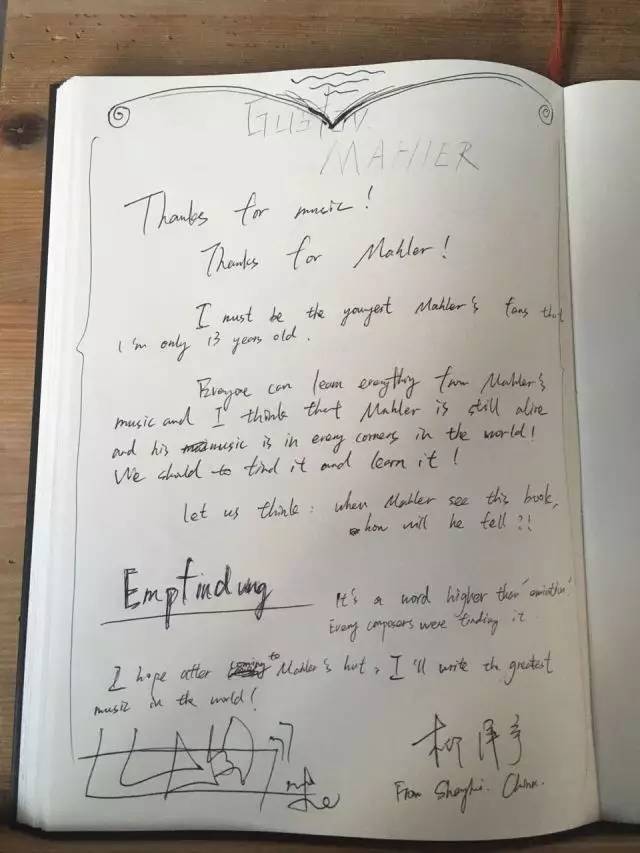 Gustav
MAHlER
Thanks for music!
Thanks for Mahler!
I must be the yougest Mahler's fans that
I'm only 13 years old.
Everyoe can learn everything from Mahler's
music and I think that Mahler is still alive
and his music is in every corners in the world!
We should to find it and learn it!
Let us think: when Mahler see this book,
how will he fell?!!
Empfindung
It's a word higher than
Every composers were finding it
I hope after to Mahler's hut, I'll write the greatest
music in the world!
柳泽宇
From Shanghai. China.